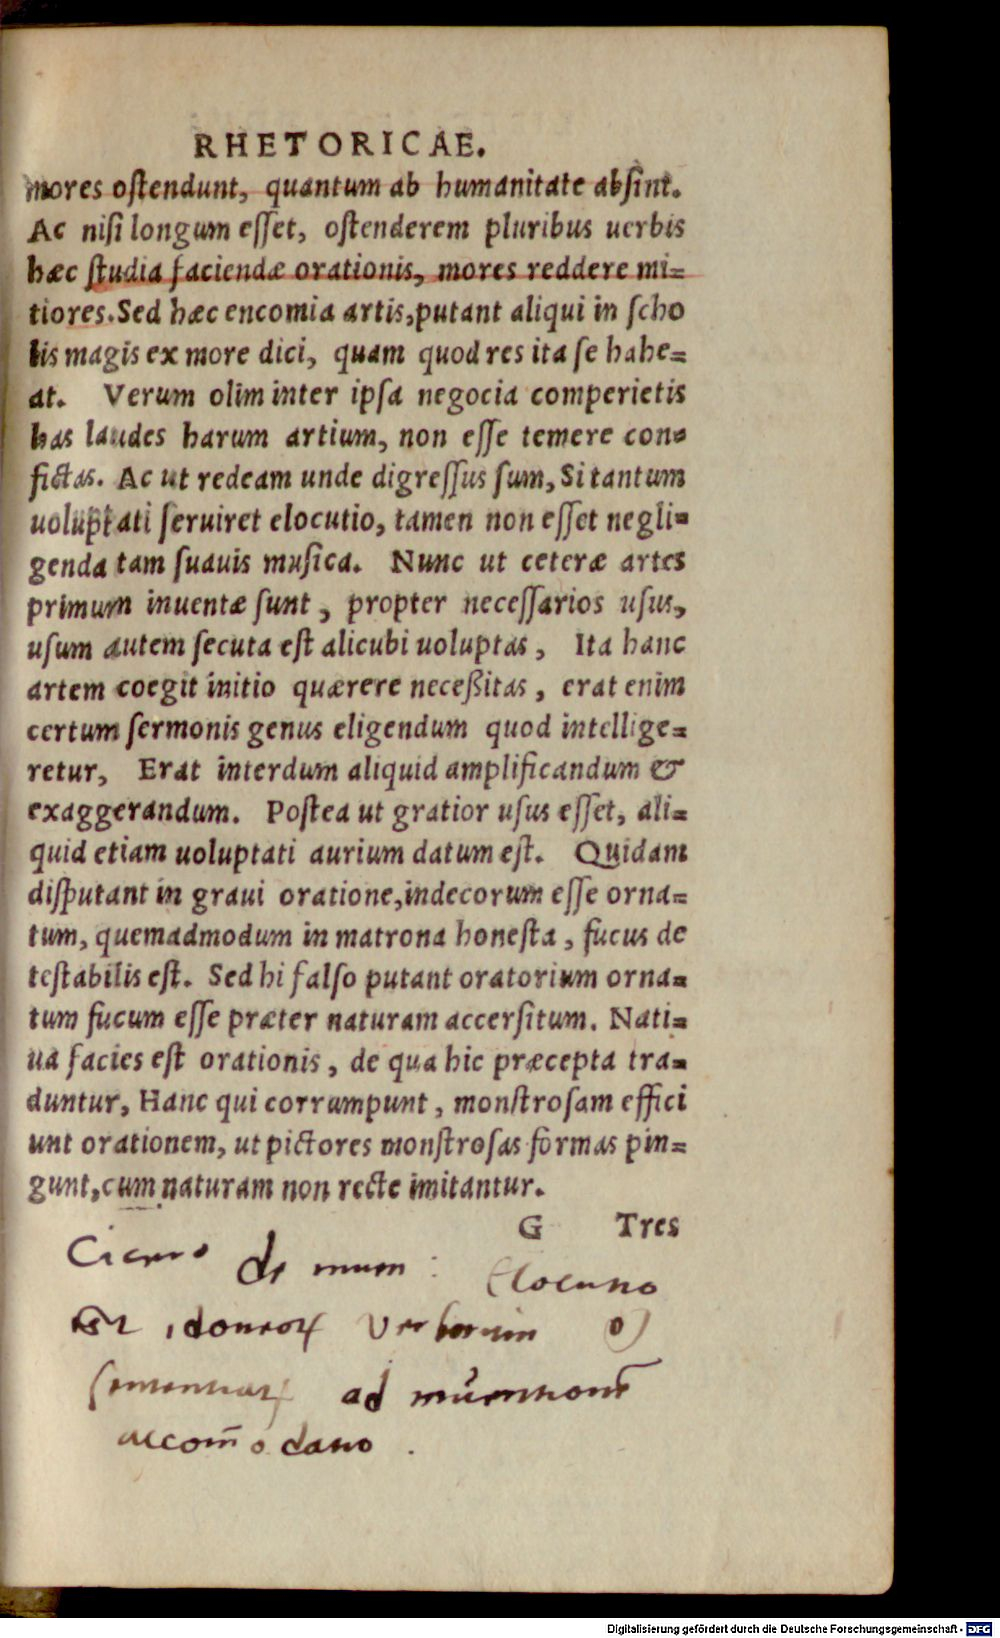 RHETORICAE.
mores oſtendunt, quantum ab humanitate abſint.
Ac niſi longum eſſet, oſtenderem pluribus uerbis
hæc ſtudia faciendæ orationis, mores reddere mi=
tiores. Sed hæc encomia artis, putant aliqui in ſcho
lis magis ex more dici, quam quod res ita ſe habe=
at. Verum olim inter ipſa negocia comperietis
has laudes harum artium, non eſſe temere con=
fictas. Ac ut redeam unde digreſſus ſum, Si tantum
uoluptati ſeruiret elocutio, tamen non eſſet negli=
genda tam ſuauis muſica. Nunc ut ceteræ artes
primum inuentæ ſunt, propter neceſſarios uſus,
uſum autem ſecuta eſt alicubi uoluptas, Ita hanc
artem coegit initio quærere neceßitas, erat enim
certum ſermonis genus eligendum quod intellige=
retur, Erat interdum aliquid amplificandum &
exaggerandum. Poſtea ut gratior uſus eſſet, ali=
quid etiam uoluptati aurium datum eſt. Quidam
diſputant in graui oratione, indecorum eſſe orna=
tum, quemadmodum in matrona honeſta, fucus de
teſtabilis eſt. Sed hi falſo putant oratorium orna=
tum fucum eſſe præter naturam accerſitum. Nati=
ua facies eſt orationis, de qua hic præcepta tra=
duntur, Hanc qui corrumpunt, monſtroſam effici
unt orationem, ut pictores monſtroſas formas pin=
gunt, cum naturam non recte imitantur.
G Tres
Cicero de inuen: Elocutio
est idoneoꝝ verborum
sententiaꝝ ad inuentionē
accom̄odatio.